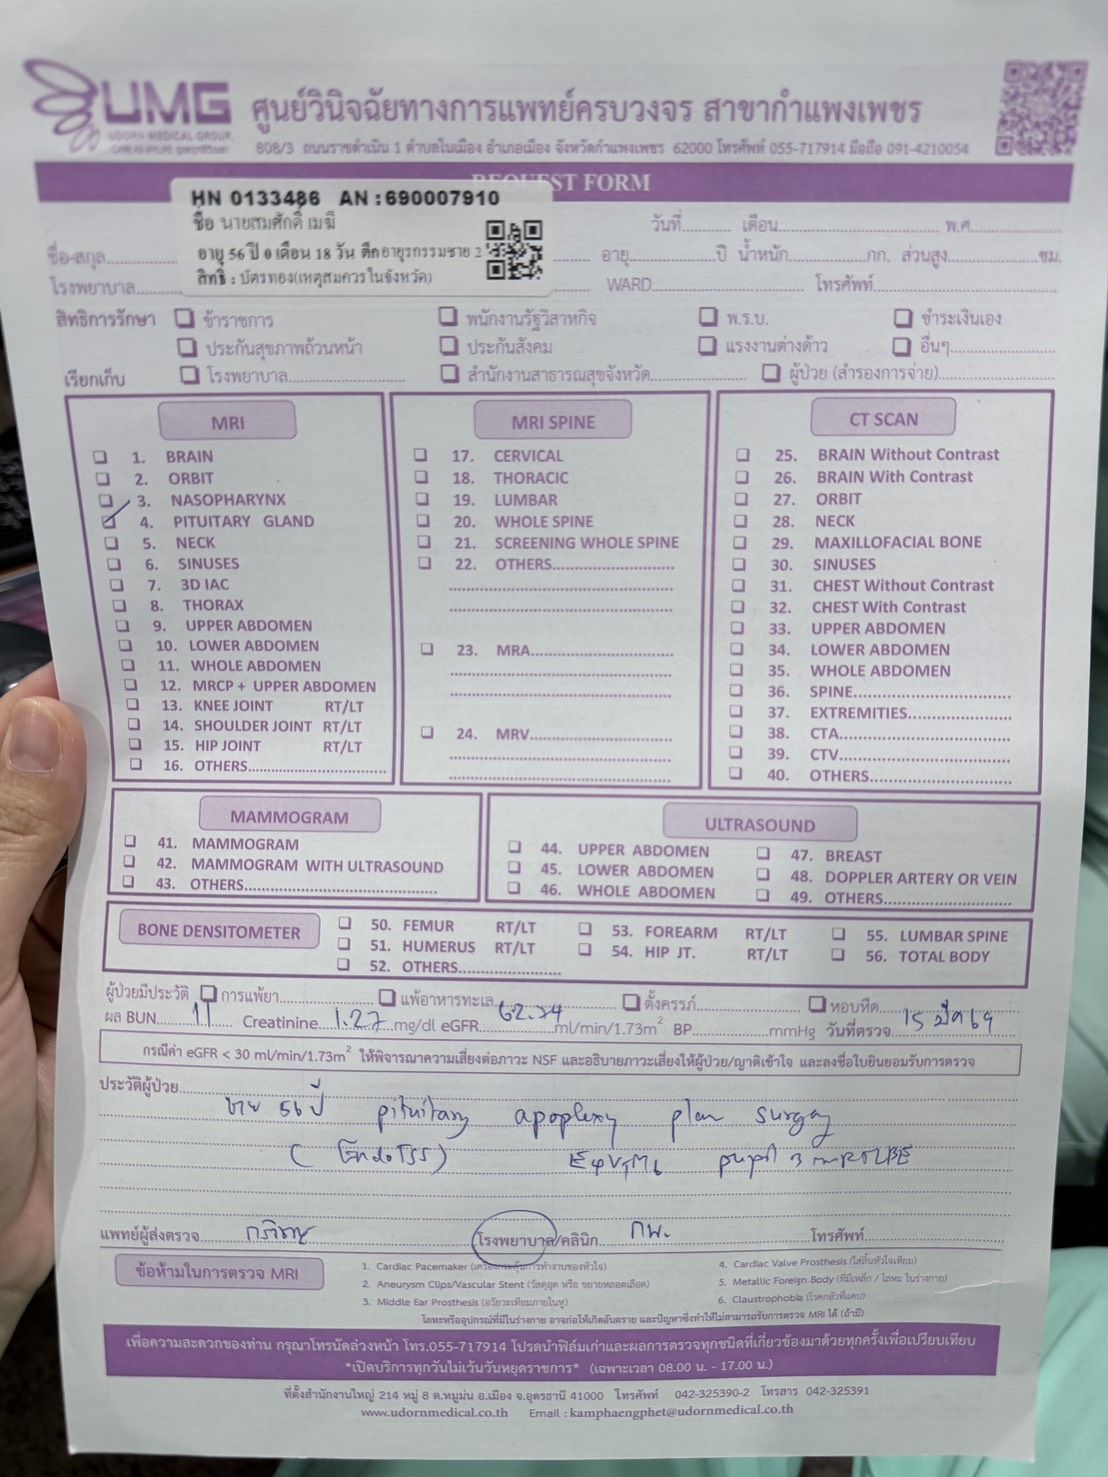 UMG ศูนย์วินิจฉัยทางการแพทย์ครบวงจร สาขากำแพงเพชร
UDORN MEDICAL GROUP.
808/3 ถนนราชดำเนิน 1 ตำบลในเมือง อำเภอเมือง จังหวัดกำแพงเพชร 62000 โทรศัพท์ 055-717914 มือถือ 091-4210054
REQUEST FORM
HN 0133486 AN : 690007910
ชื่อ นายสมศักดิ์ เมฆี
อายุ 56 ปี 0 เดือน 18 วัน ตึกอายุรกรรมชาย 2
สิทธิ : บัตรทอง(เหตุสมควรในจังหวัด)
วันที่ เดือน พ.ศ.
ชื่อ-สกุล อายุ ปี น้ำหนัก กก. ส่วนสูง ซม.
โรงพยาบาล WARD โทรศัพท์
สิทธิการรักษา ข้าราชการ พนักงานรัฐวิสาหกิจ พ.ร.บ. ชำระเงินเอง
ประกันสุขภาพถ้วนหน้า ประกันสังคม แรงงานต่างด้าว อื่นๆ
เรียกเก็บ โรงพยาบาล สำนักงานสาธารณสุขจังหวัด ผู้ป่วย (สำรองการจ่าย)
MRI
1. BRAIN
2. ORBIT
3. NASOPHARYNX
4. PITUITARY GLAND
5. NECK
6. SINUSES
7. 3D IAC
8. THORAX
9. UPPER ABDOMEN
10. LOWER ABDOMEN
11. WHOLE ABDOMEN
12. MRCP + UPPER ABDOMEN
13. KNEE JOINT RT/LT
14. SHOULDER JOINT RT/LT
15. HIP JOINT RT/LT
16. OTHERS
MRI SPINE
17. CERVICAL
18. THORACIC
19. LUMBAR
20. WHOLE SPINE
21. SCREENING WHOLE SPINE
22. OTHERS
23. MRA
24. MRV
CT SCAN
25. BRAIN Without Contrast
26. BRAIN With Contrast
27. ORBIT
28. NECK
29. MAXILLOFACIAL BONE
30. SINUSES
31. CHEST Without Contrast
32. CHEST With Contrast
33. UPPER ABDOMEN
34. LOWER ABDOMEN
35. WHOLE ABDOMEN
36. SPINE
37. EXTREMITIES
38. CTA
39. CTV
40. OTHERS
MAMMOGRAM
41. MAMMOGRAM
42. MAMMOGRAM WITH ULTRASOUND
43. OTHERS
ULTRASOUND
44. UPPER ABDOMEN 47. BREAST
45. LOWER ABDOMEN 48. DOPPLER ARTERY OR VEIN
46. WHOLE ABDOMEN 49. OTHERS
BONE DENSITOMETER
50. FEMUR RT/LT 53. FOREARM RT/LT 55. LUMBAR SPINE
51. HUMERUS RT/LT 54. HIP JT. RT/LT 56. TOTAL BODY
52. OTHERS
ผู้ป่วยมีประวัติ การแพ้ยา แพ้อาหารทะเล ตั้งครรภ์ หอบหืด
ผล BUN 11 Creatinine 1.27 mg/dl eGFR 62.74 ml/min/1.73m² BP mmHg วันที่ตรวจ 15 มีค 69
กรณีค่า eGFR < 30 ml/min/1.73m² ให้พิจารณาความเสี่ยงต่อภาวะ NSF และอธิบายภาวะเสี่ยงให้ผู้ป่วย/ญาติเข้าใจ และลงชื่อใบยินยอมรับการตรวจ
ประวัติผู้ป่วย
ชาย 56 ปี pituitary apoplexy plan surgery
pupil 3
แพทย์ผู้ส่งตรวจ โรงพยาบาล/คลินิก กพ. โทรศัพท์
ข้อห้ามในการตรวจ MRI
1. Cardiac Pacemaker (เครื่องกระตุ้นการทำงานของหัวใจ)
2. Aneurysm Clips/Vascular Stent (วัสดุอุด หรือ ขยายหลอดเลือด)
3. Middle Ear Prosthesis (อวัยวะเทียมภายในหู)
4. Cardiac Valve Prosthesis (ใส่ลิ้นหัวใจเทียม)
5. Metallic Foreign Body (ที่มีเหล็ก / โลหะ ในร่างกาย)
6. Claustrophobia (โรคกลัวที่แคบ)
โลหะหรืออุปกรณ์ที่มีในร่างกาย อาจก่อให้เกิดอันตราย และปัญหาซึ่งทำให้ไม่สามารถรับการตรวจ MRI ได้ (ถ้ามี)
เพื่อความสะดวกของท่าน กรุณาโทรนัดล่วงหน้า โทร.055-717914 โปรดนำฟิล์มเก่าและผลการตรวจทุกชนิดที่เกี่ยวข้องมาด้วยทุกครั้งเพื่อเปรียบเทียบ
*เปิดบริการทุกวันไม่เว้นวันหยุดราชการ* (เฉพาะเวลา 08.00 น. - 17.00 น.)
ที่ตั้งสำนักงานใหญ่ 214 หมู่ 8 ต.หมูม่น อ.เมือง จ.อุดรธานี 41000 โทรศัพท์ 042-325390-2 โทรสาร 042-325391
www.udornmedical.co.th Email : kamphaengphet@udornmedical.co.th